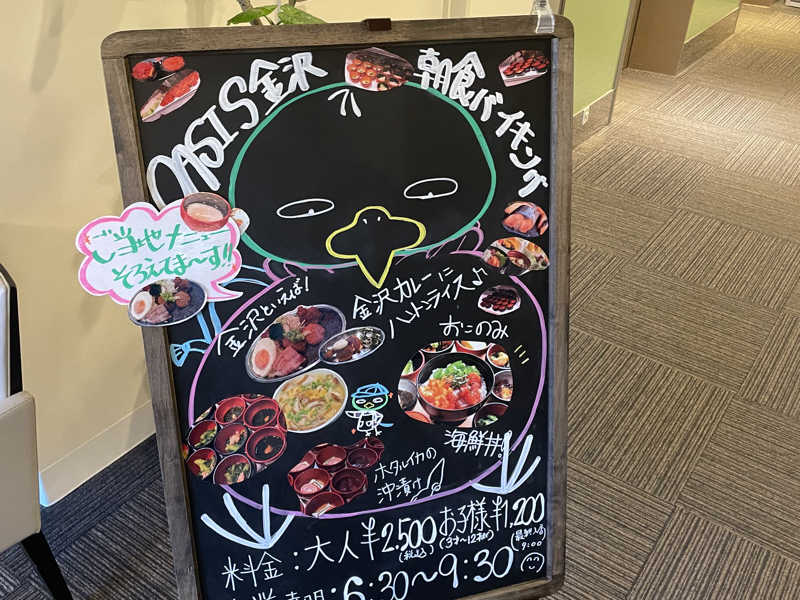 OASIS金沢
朝食バイキング
ご当地メニュー
そろえてま〜す!!
金沢といえば!
金沢カレーに
ハントンライス♪
おこのみ
海鮮丼!
ホタルイカの
沖漬け
料金:大人¥2.500 お子様¥1.200
(税込) (3才〜12才) (最終入店
9:00)
6:30〜9:30